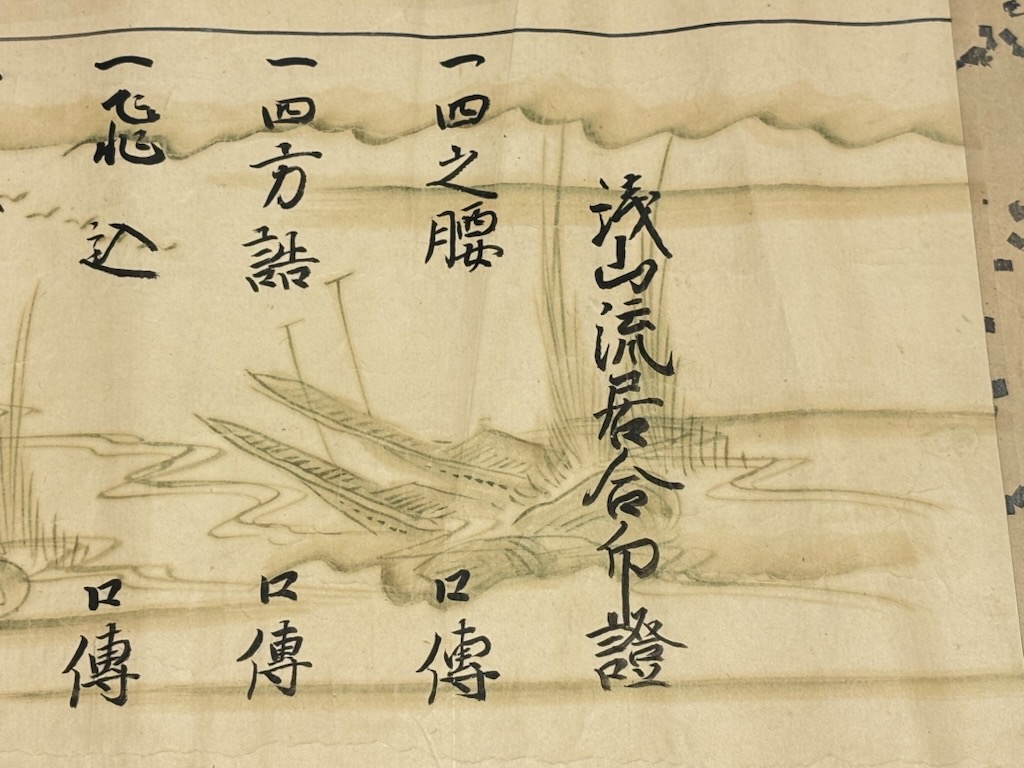 淺山流居合印證
一四之腰 口傳
一四方詰 口傳
一飛込 口傳